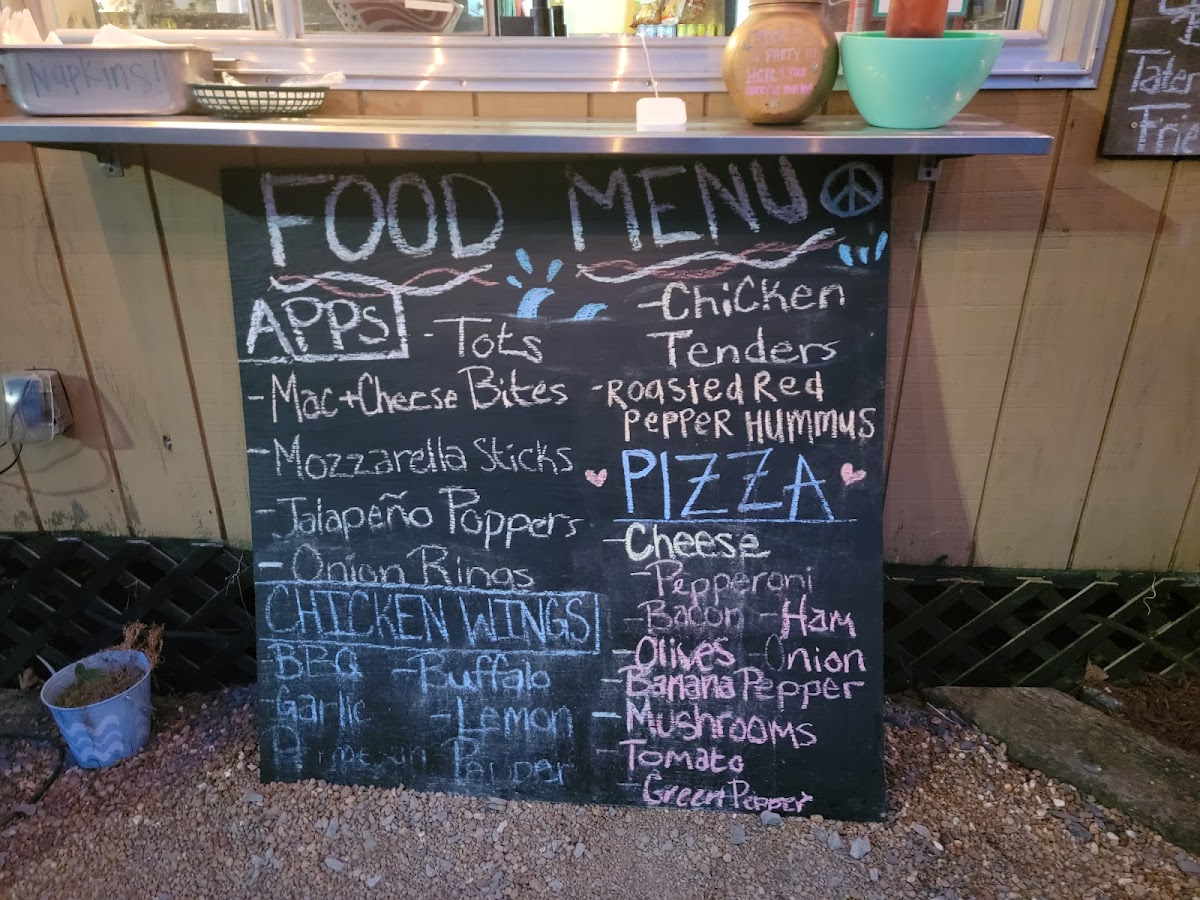 NAPKINS!
PARTY
FOOD MENU
APPS
- Tots
- Mac + Cheese Bites
- Mozzarella Sticks
- Jalapeño Poppers
- Onion Rings
CHICKEN WINGS
- BBQ - Buffalo
- Garlic - Lemon
Pepper
- Chicken
Tenders
- Roasted Red
Pepper HUMMUS
PIZZA
- Cheese
- Pepperoni
- Bacon - Ham
- Olives - Onion
- Banana Pepper
- Mushrooms
- Tomato
- Green Pepper
Tater